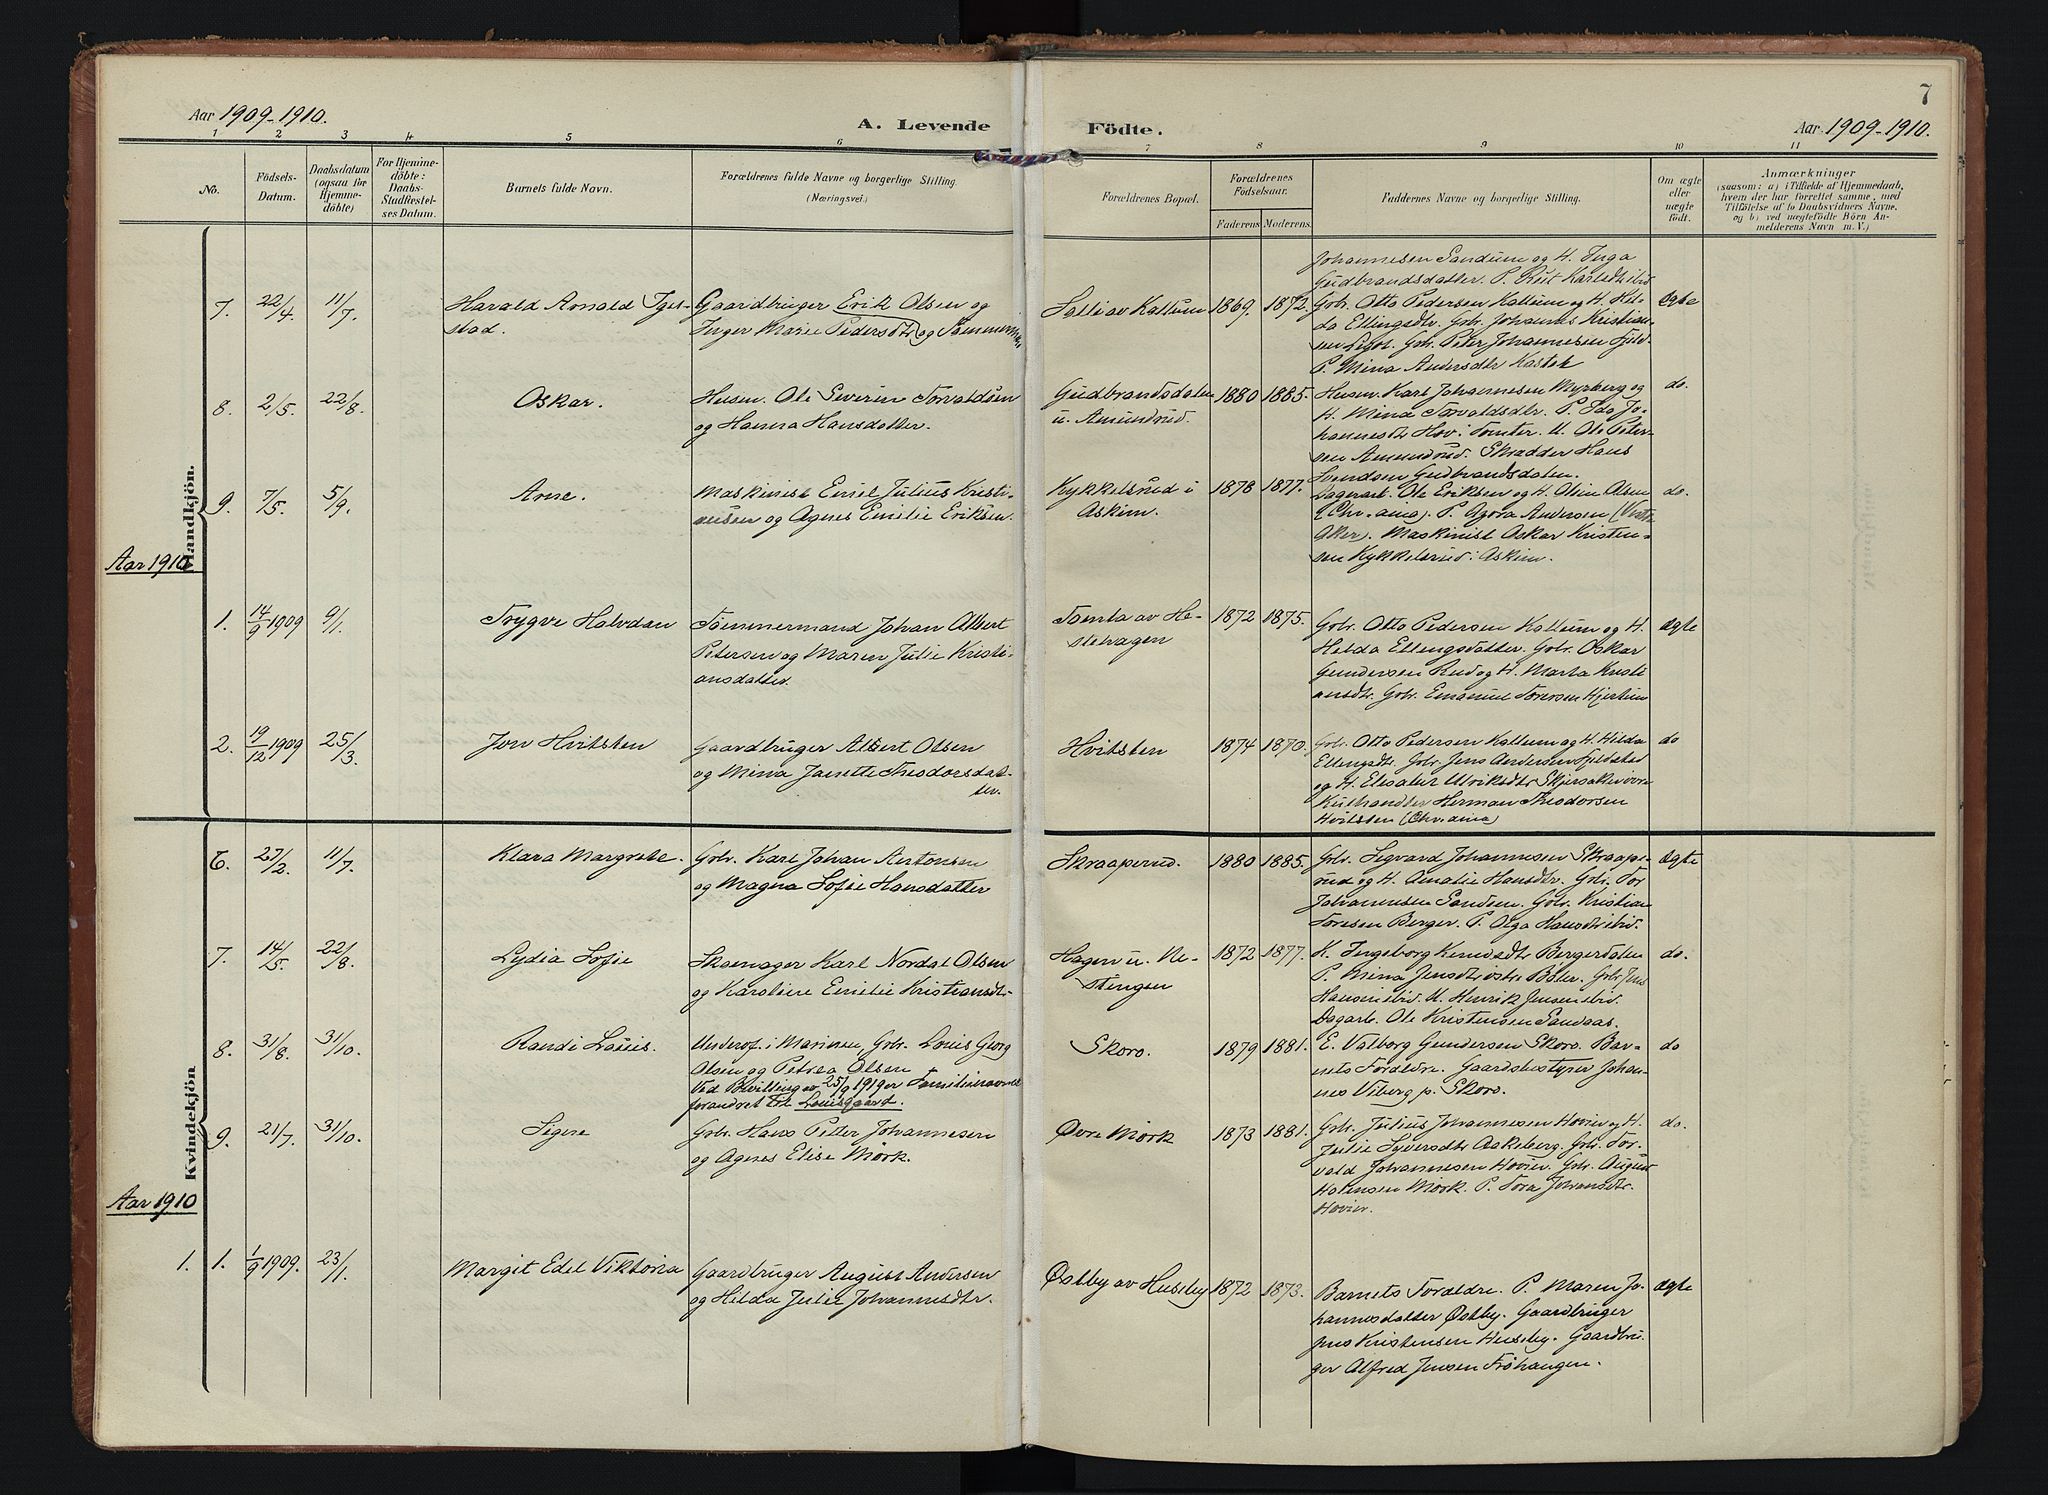 7
Aar 1909-1910.
A. Levende
Födte.
Aar 1909-1910.
1 2 3 4 5 6 7 8 9 10 11
No.
Födsels-
Datum.
Daabsdatum
(ogsaa for
Hjemme-
döbte)
For Hjemme-
döbte:
Daabs-
Stadfæstel-
ses Datum.
Barnets fulde Navn.
Forældrenes fulde Navne og borgerlige Stilling.
(Næringsvei.)
Forældrenes Bopæl.
Forældrenes
Födselsaar.
Faderens Moderens.
Faddernes Navne og borgerlige Stilling.
Om ægte
eller
uægte
födt.
Anmærkninger
(saasom: a) i Tilfælde af Hjemmedaab,
hvem der har forrettet samme, med
Tilföielse af to Daabsvidners Navne,
og b) ved uægtefödte Börn An-
melderens Navn m. V.)
Mandkjön.
Johannesen Sandum og H. Inga
Gudbrandsdatter. P.
7. 22/4 11/7
Harald Arnold Iges-
stad.
Gaardbruger Erik Olsen og
Inger Marie Pedersdtr.
Kallum 1869. 1872.
Gbr. Otto Pedersen Kallum og H. Hil-
da Ellingsdtr. Gbr. Johannes Kristian-
sen Gbr. Peter Johannesen
P. Mina Andersdtr
Ægte
8. 2/5. 22/8.
Oskar.
Husm. Ole Severin Torvaldsen
og Hanna Hansdatter.
Gudbrandsdalen
u. Amundrud.
1880 1885.
Husm. Karl Johannesen Myrberg og
H. Mina Torvaldsdtr. P. Ida Jo-
hannesdtr Hov i Tomter. U. Ole Peter-
sen Amundrud. Skrædder Hans
Svendsen Gudbrandsdalen.
do.
9. 7/5. 5/9.
Arne.
Maskinist Emil Julius Kristi-
ansen og Agnes Emilie Eriksen.
Kykkelsrud i
Askim.
1878 1877.
Dagarb. Ole Eriksen og H. Oline Olsen
(Chr.ania). P. Agora Andersen (Vestr.
Aker). Maskinist Oskar Kristen-
sen Kykkelsrud i Askim.
do.
Aar 1910
1. 14/9 1909 9/1.
Trygve Halvdan
Tømmermand Johan Albert
Petersen og Maren Julie Kristi-
ansdatter.
Tomta av He-
stehagen
1872 1875.
Gbr. Otto Pedersen Kallum og H.
Hilda Ellingsdatter. Gbr. Oskar
Gundersen Rud og H. Marta Kristi
ansdtr. Gbr. Emanuel Toresen Hjertum
Ægte
2. 19/12 1909 25/3.
Jon Hvitsten
Gaardbruger Albert Olsen
og Mina Janette Theodorsdat-
ter.
Hvitsten 1874 1870.
Gbr. Otto Pedersen Kallum og H. Hilda
Ellingsdtr. Gbr. Jens Andersen Fjeldstad
og H. Elisabet Ulriksdtr
Herman Theodorsen
Hvitsten (Chr.ania)
do
Kvindekjön
6. 27/2. 11/7.
Klara Margrete.
Gbr. Karl Johan Antonsen
og Magna Sofie Hansdatter
Skraaperud. 1880 1885.
Gbr. Sigvard Johannesen Skraape-
rud og H. Amalie Hansdtr. Gbr. Tor
Johannesen Sandum. Gbr. Kristian
Toresen Berger. P. Olga Hansdtr ibid.
Ægte
7. 14/5. 22/8.
Lydia Sofie
Skomager Karl Nordal Olsen
og Karoline Emilie Kristiansdtr.
Hagen u. Ne-
stengen
1872 1877.
K. Ingeborg Knudsdtr Bergerdalen
P. Mina Jensdtr Østre Bøler. Gbr. Jens
Hansen ibid. U. Henrik Jensen ibid.
Dagarb. Ole Kristensen Sandaas.
do.
8. 31/8. 31/10.
Randi Louis.
Underof. i Marinen, Gbr. Louis Georg
Olsen og Petrea Olsen
Ved Bevilling av 25/9 1919 er Familienavnet
forandret til Louisgaard.
Skoro. 1879 1881.
E. Valborg Gundersen Skoro. Bar-
nets Forældre. Gaardsbestyrer Johan-
nes Viberg p. Skoro.
do
9. 21/7. 31/10.
Signe
Gbr. Hans Petter Johannesen
og Agnes Elise Mørk.
Øvre Mørk 1873 1881.
Gbr. Julius Johannesen Hovier og H.
Julie Syversdtr Aakeberg. Gbr. Tor-
vald Johannesen Hovier. Gbr. August
Mørk. P. Tora Johansdtr.
Hovier.
do.
Aar 1910
1. 1. 1/9 1909. 23/1.
Margit Edel Viktoria
Gaardbruger August Andersen
og Hilda Julie Johannesdtr.
Østby av Huseby 1872 1873.
Barnets Forældre. P. Maren Jo-
hannesdatter Østby. Gaardbruger
Jens Kristensen Huseby. Gaardbru-
ger Alfred Jensen Frøhaugen.
Ægte